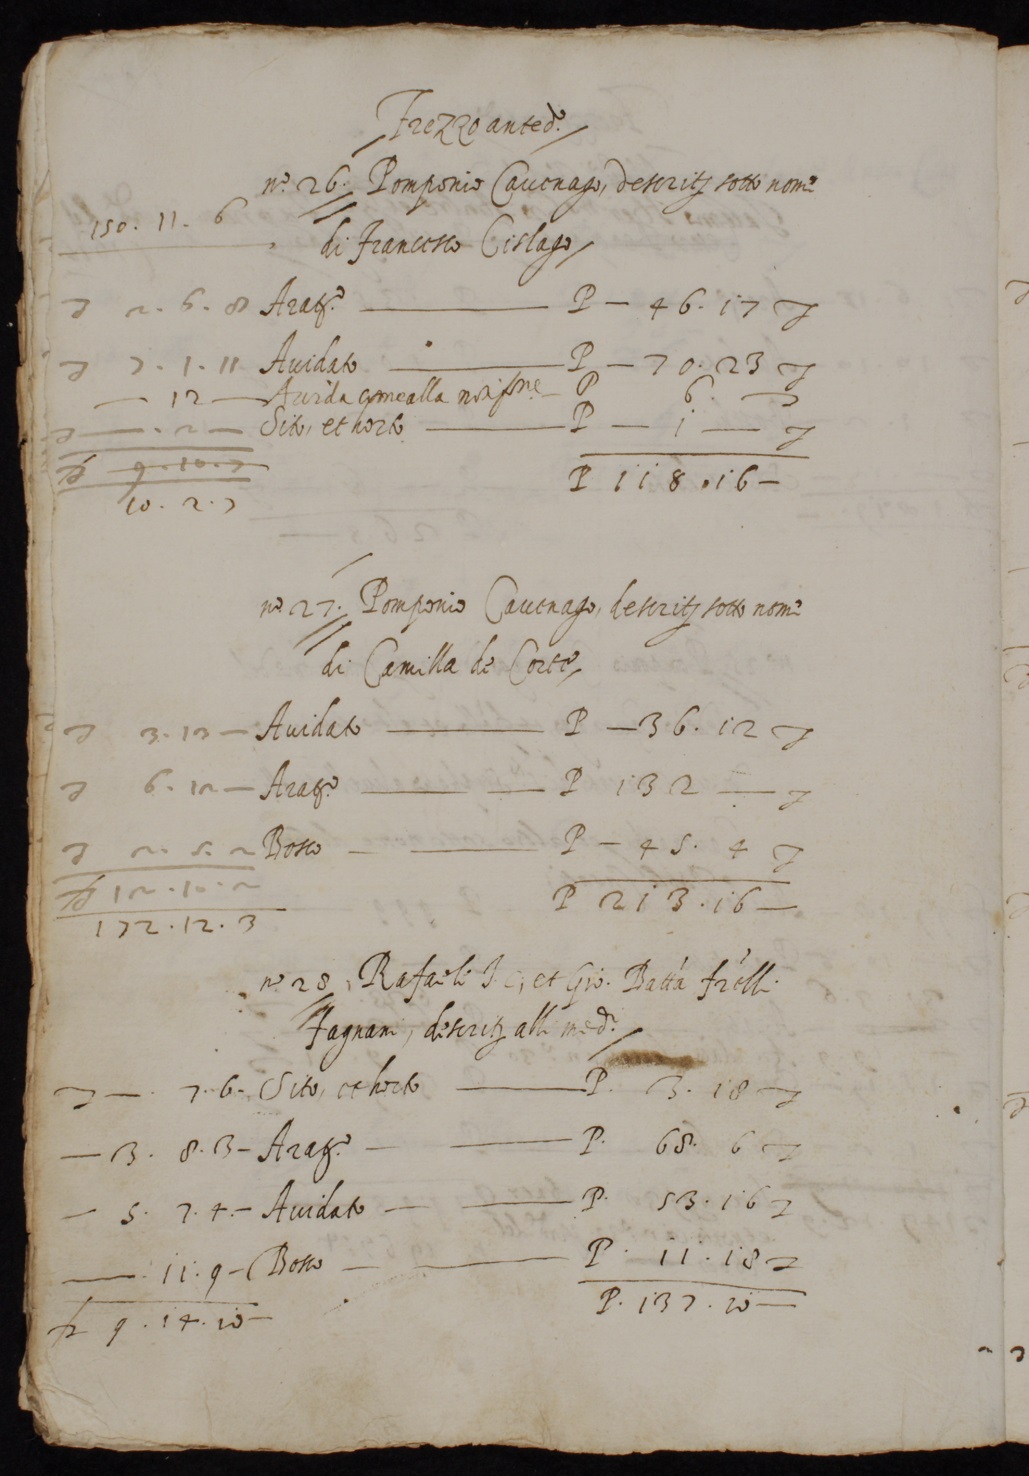 Trezzo anted.o
n.o 26. Pomponio Cavenago, descritt sotto nome
150. 11. 6
di Francesco Cislago
2. 6. 8 Arat.o P — 46. 17
7. 1. 11 Avidato P — 70. 23
— 12 — Avida P 6. —
— . 2 — Sito, et horto P — 1 —
9. 10. 7 P 118. 16 —
10. 2. 7
n.o 27. Pomponio Cavenago, descritt sotto nome
di Camilla de Corte
3. 13 — Avidato P — 36. 12
6. 12 — Arat.o P 132 —
2. 5. 2 Bosco P — 45. 4
12. 10. 2 P 213. 16 —
172. 12. 3
n.o 28, Rafaele et Gio. Batta frelli
Fagnani, descritt alli med.i
— 7. 6 — Sito, et horto P. 3. 18
— 3. 8. 3 — Arat.o — P. 68. 6
— 5. 7. 4. — Avidato — P. 53. 16
— 11. 9 — Bosco — P. 11. 18
9. 14. 10 — P. 137. 10 —